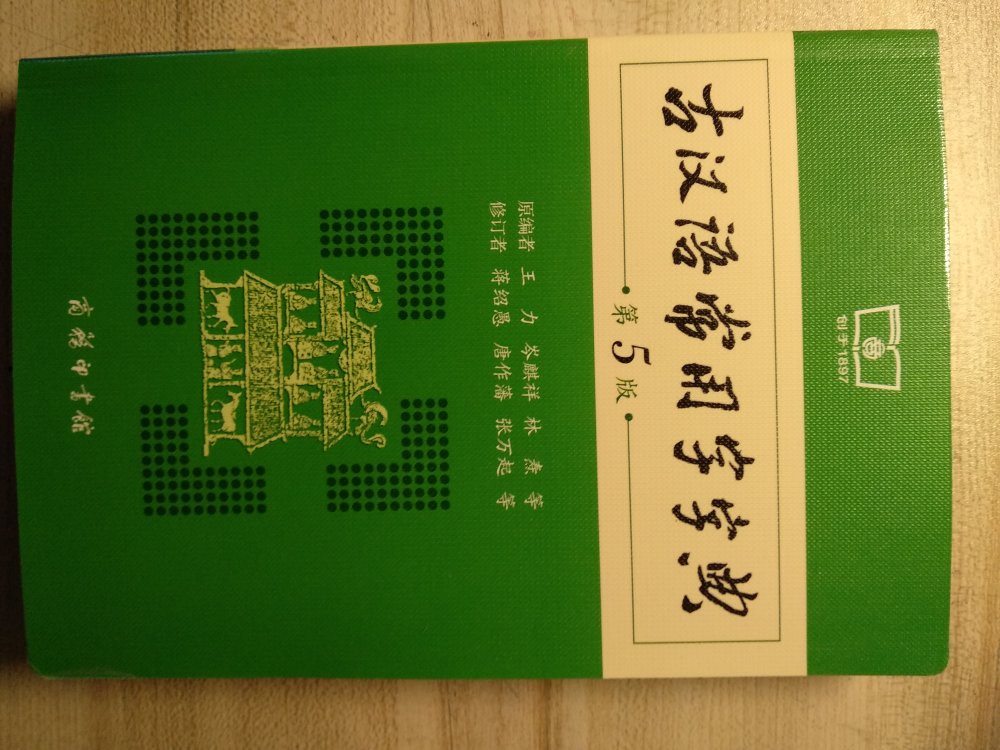 创于1897
古汉语常用字字典
第5版
原编者 王 力 岑麒祥 林 焘 等
修订者 蒋绍愚 唐作藩 张万起 等
商务印书馆